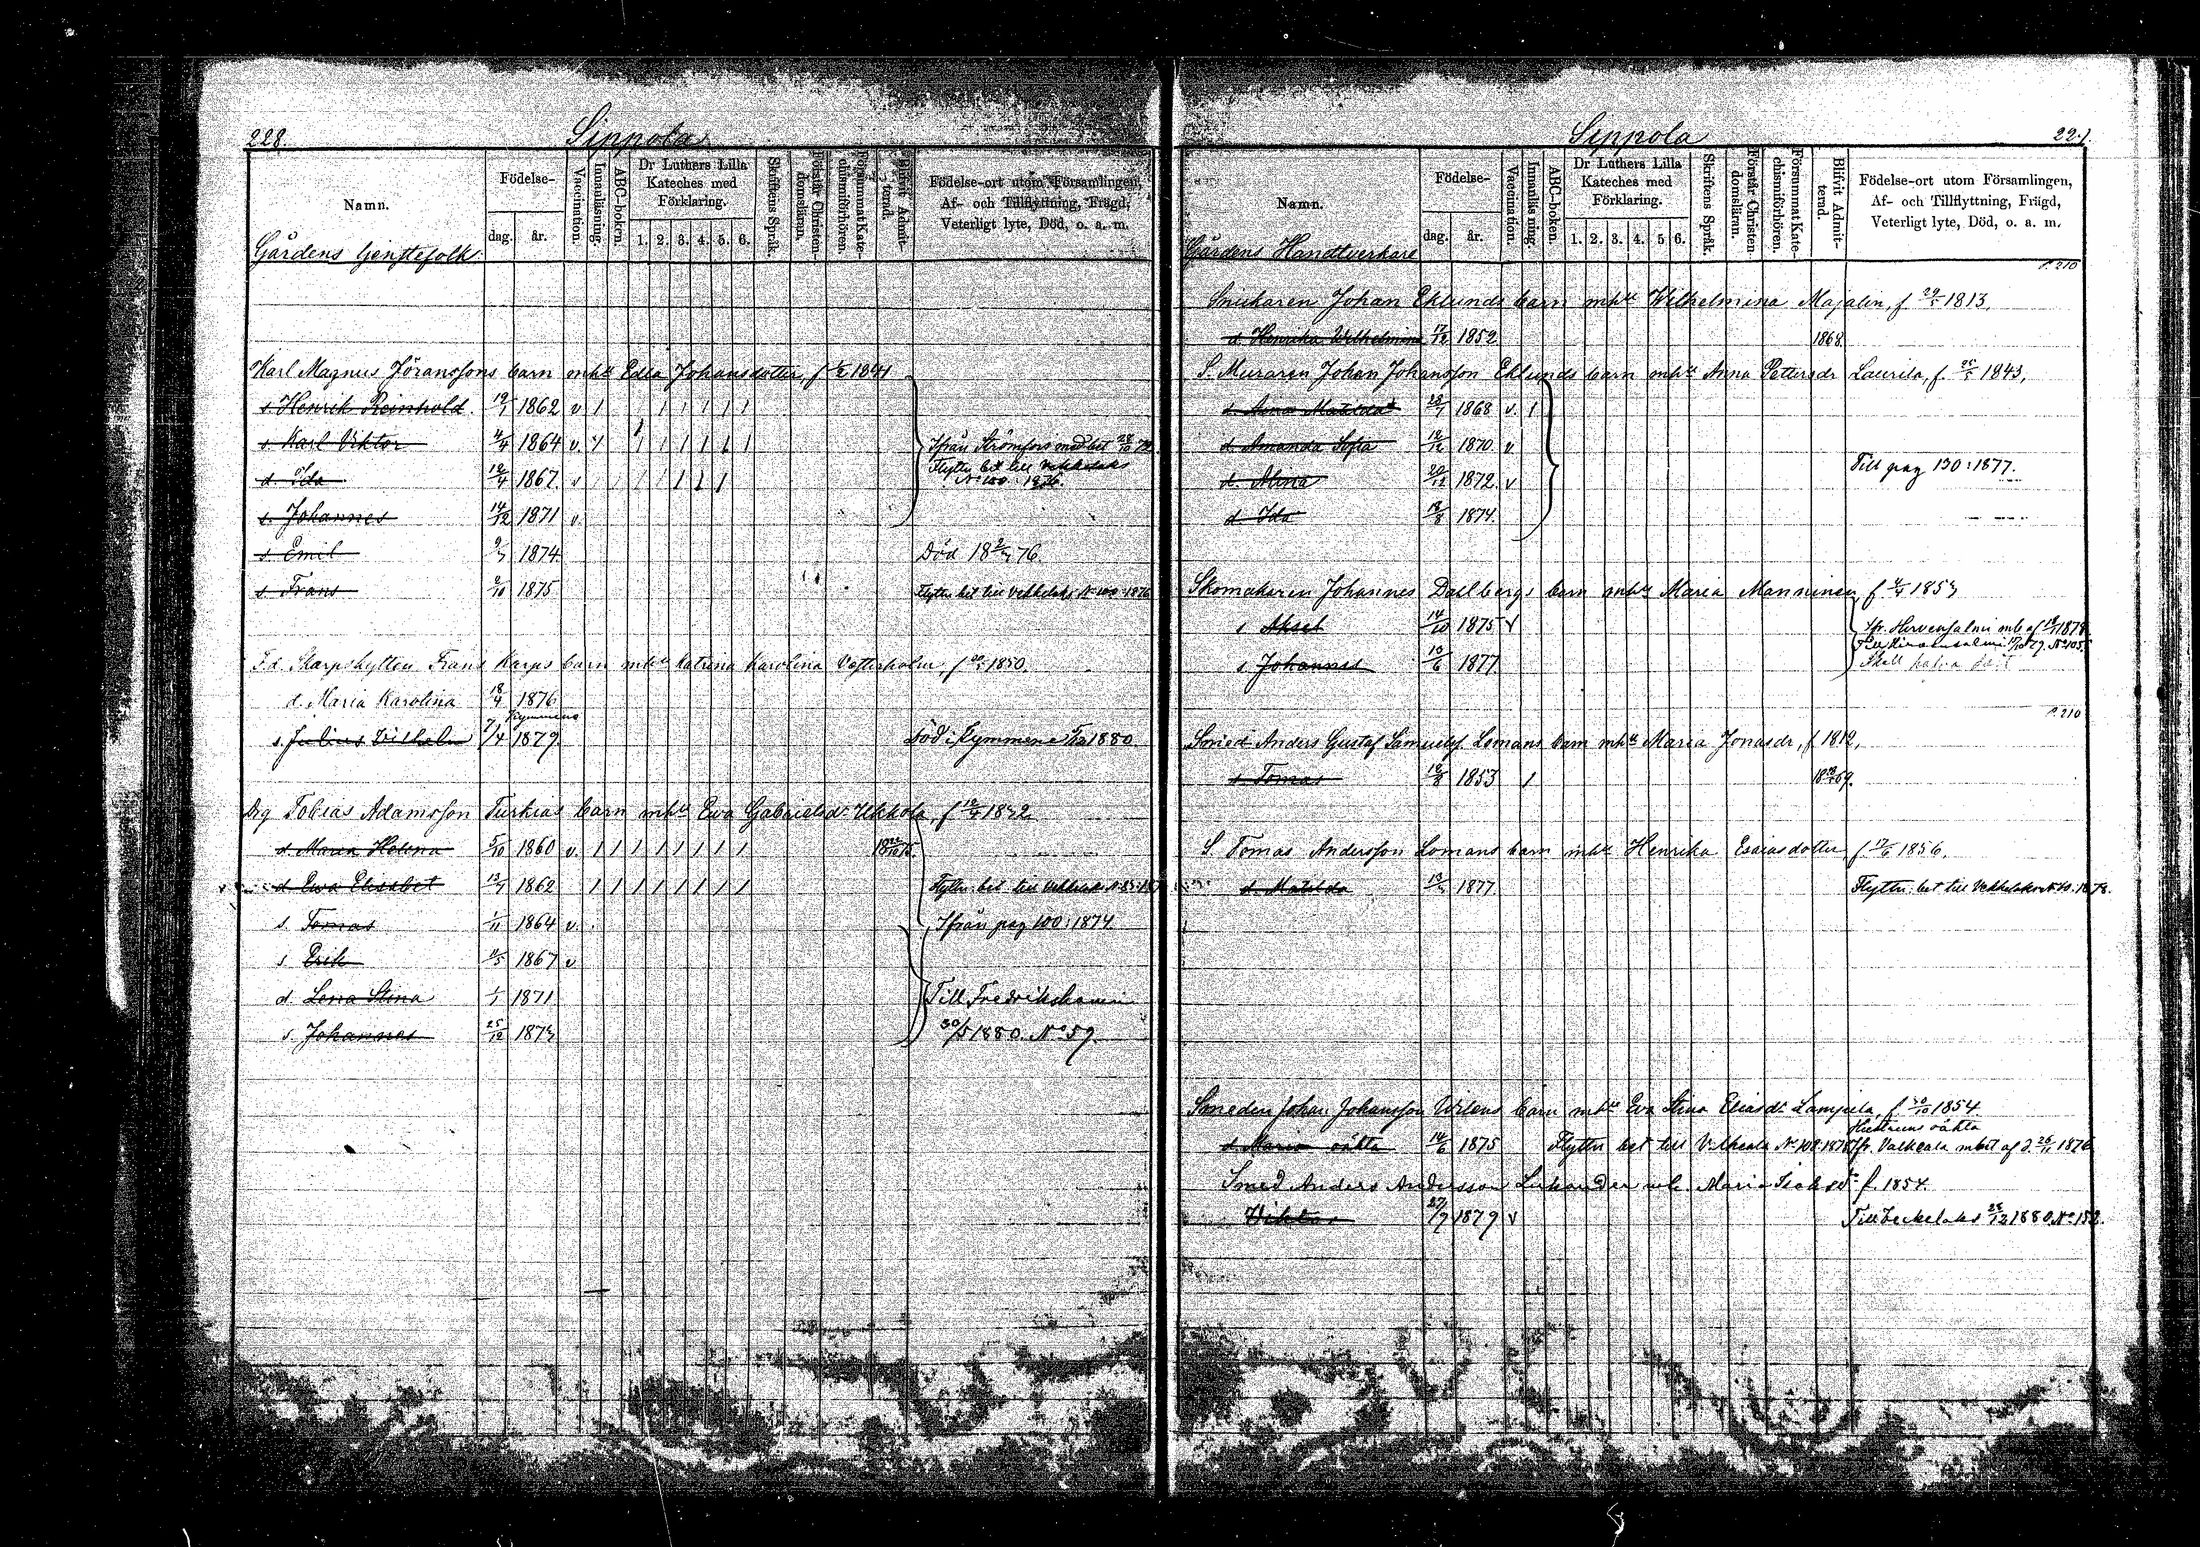 228.
Sippola
Namn.
Födelse-
dag. år.
Vaccination.
Innanläsning.
ABC-boken.
Dr Luthers Lilla Kateches med Förklaring.
1. 2. 3. 4. 5. 6.
Skriftens Språk.
Förstår Christendomsläran.
Försummat Katechismiförhören.
Blifvit Admitterad.
Födelse-ort utom Församlingen,
Af- och Tillflyttning, Frägd,
Veterligt lyte, Död, o. a. m.
Gårdens
Karl Magnus Jöranssons barn mhu Edla Johansdotter, f 1841
s. Henrik Reinhold 19/1 1862 v /
s. Karl Viktor 1864 v.
Ifrån Strömfors med bet 28/10
d Ida 12/4 1867 v
Flyttn bet till Vekkelaks No 100: 1876.
s. Johannes 14/12 1871 v.
s Emil 1874
Död 76.
s. Frans 2/10 1875
Flyttn bet till Vekkelaks No 100: 1876
F.d. Skarpskytten Frans Karps barn mhu Katrina Karolina Vesterholm, f 1850.
d. Maria Karolina 18/4 1876
Kymmene
s. Julius Vilhelm 7/4 1879.
Död i Kymmene 1880.
Drg Tobias Adamsson Turkias barn mhu Eva Gabrielsdr Ukkola, f 1832
d. Maria Helena 5/10 1860 v. / / / / / / / /
d Eva Elisabet 13/7 1862 / / / / / / / /
Flyttn bet till Vekkelaks
s. Tomas 1/11 1864 v.
Ifrån pag 100: 1874.
s Erik 1867 v
d. Lena Stina 1/1 1871
Till Fredrikshamn
s. Johannes 25/12 1873
30/5 1880. No 59.
Sippola
229.
Namn.
Födelse-
dag. år.
Vaccination.
Innanläsning.
ABC-boken.
Dr Luthers Lilla Kateches med Förklaring.
1. 2. 3. 4. 5 6.
Skriftens Språk.
Förstår Christendomsläran.
Försummat Katechismiförhören.
Blifvit Admitterad.
Födelse-ort utom Församlingen,
Af- och Tillflyttning, Frägd,
Veterligt lyte, Död, o. a. m.
Gårdens Handtverkare
P. 210
Snickaren Johan Eklunds barn mhu Wilhelmina Majalin, f 29/5 1813,
d. Henrika Wilhelmina 17/12 1852 1868
S. Muraren Johan Johansson Eklunds barn mhu Anna Pettersdr Laurila, f. 25/5 1843,
d. Matilda 28/7 1868 v. /
d Amanda Sofia 12/12 1870. v
d. Alina 20/12 1872 v
Till pag 130: 1877.
d Ida 18/8 1874.
Skomakaren Johannes Dahlbergs barn mhu Maria Manninen, f 1853
s Aksel 14/10 1875 v
s. Johannes 10/6 1877
P. 210
Smed Anders Gustaf Samuelss. Lomans barn mhu Maria Jonasdr, f 1812,
s Tomas 18/8 1853 / 69.
S. Tomas Andersson Lomans barn mhu Henrika Esaiasdotter f. 17/6 1856,
d. Matilda 1877
Flyttn. bet till Vekkelaks No 40. 1878.
Smeden Johan Johansson Wilens barn mhu Eva Stina Eliasdr Lampila, f 20/10 1854.
Hustruns oäkta
d. Maria oäkta 14/6 1875 Flyttn bet till Valkeala No 108. 1878 Ifr. Valkeala mbet af d. 26/11 1876
Smed Anders Andersson Lekander mh. Maria Isaksdr f. 1854.
Viktor 27/9 1879 v
Till Veckelaks 28/12 1880. No 152.